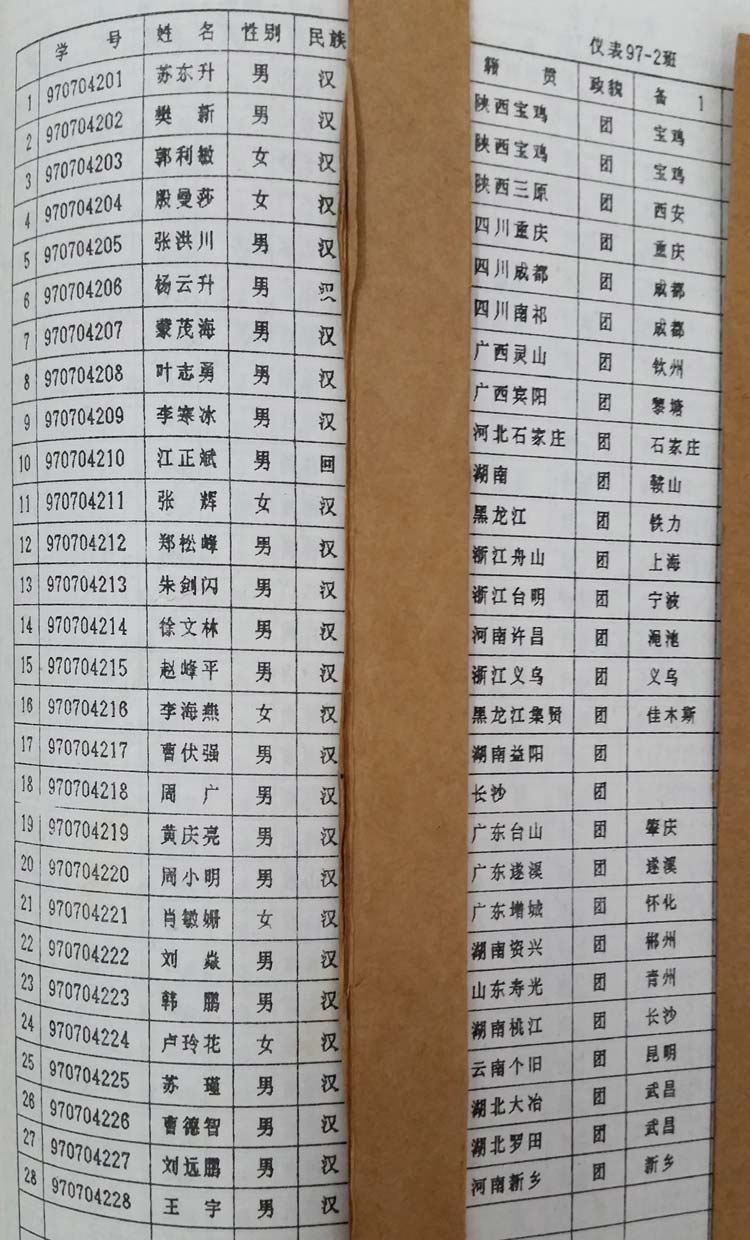 仪表97-2班
学 号 姓 名 性别 民族 籍 贯 政貌 备 1
1 970704201 苏东升 男 汉 陕西宝鸡 团 宝鸡
2 970704202 樊 新 男 汉 陕西宝鸡 团 宝鸡
3 970704203 郭利敏 女 汉 陕西三原 团 西安
4 970704204 殷曼莎 女 汉 四川重庆 团 重庆
5 970704205 张洪川 男 汉 四川成都 团 成都
6 970704206 杨云升 男 四川南祁 团 成都
7 970704207 蒙茂海 男 汉 广西灵山 团 钦州
8 970704208 叶志勇 男 汉 广西宾阳 团 黎塘
9 970704209 李寒冰 男 汉 河北石家庄 团 石家庄
10 970704210 江正斌 男 回 湖南 团 鞍山
11 970704211 张 辉 女 汉 黑龙江 团 铁力
12 970704212 郑松峰 男 汉 浙江舟山 团 上海
13 970704213 朱剑闪 男 汉 浙江台明 团 宁波
14 970704214 徐文林 男 汉 河南许昌 团 渑池
15 970704215 赵峰平 男 汉 浙江义乌 团 义乌
16 970704216 李海燕 女 汉 黑龙江集贤 团 佳木斯
17 970704217 曹伏强 男 汉 湖南益阳 团
18 970704218 周 广 男 汉 长沙 团
19 970704219 黄庆亮 男 汉 广东台山 团 肇庆
20 970704220 周小明 男 汉 广东遂溪 团 遂溪
21 970704221 肖敏姗 女 汉 广东增城 团 怀化
22 970704222 刘 焱 男 汉 湖南资兴 团 郴州
23 970704223 韩 鹏 男 汉 山东寿光 团 青州
24 970704224 卢玲花 女 汉 湖南桃江 团 长沙
25 970704225 苏 瑾 男 汉 云南个旧 团 昆明
26 970704226 曹德智 男 汉 湖北大冶 团 武昌
27 970704227 刘远鹏 男 汉 湖北罗田 团 武昌
28 970704228 王 宇 男 汉 河南新乡 团 新乡